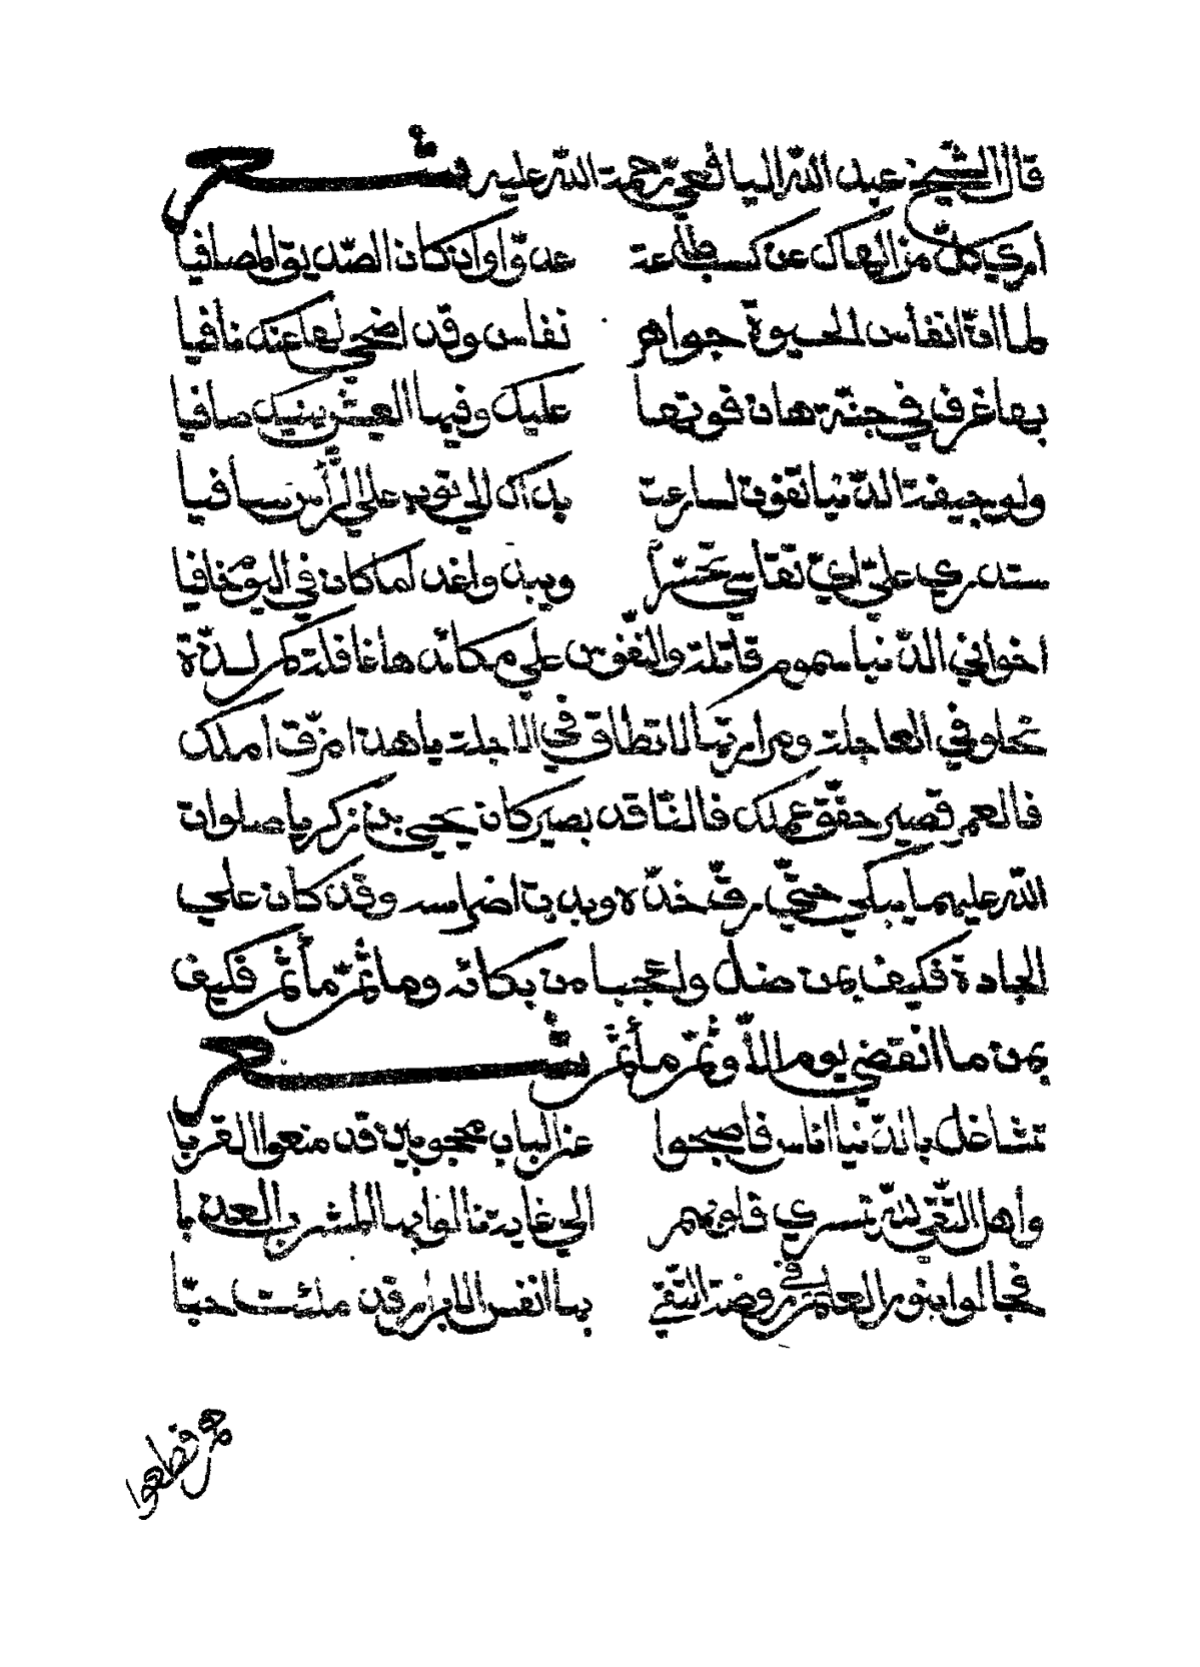 قال الشيخ عبد الله اليافعي رحمة الله عليه شعر
اري كل من الهاك عن كسب طاعة عدوّا وان كان الصّديق المصافيا
لما افة انفاس الحيوة جواهر نفاس وقد اضحي لها عند نافيا
بها غرف في جنة هان فوتها عليك وفيها العيش بنيك صافيا
ولو جيفة الدّنيا تفوت لسارعت يداك الي توب علي الرّأس سافيا
ستدري علي ايّ تقاسي تحسّرًا ويبدو اغدا ما كان في اليوم خافيا
اخواني الدّنيا سموم قاتلة والنّفوس علي مكائدها غافلة كم لذّة
تحلو في العاجلة ومرارتها لا تطاق في الاجلة يا هذا مزّق املك
فالعمر قصير حقّق عملك فالنّاقد بصير كان يحيي بن زكريا صلوات
الله عليهما يبكي حتّي رقّ خدّه وبدت اضراسه وقد كان علي
الجادة فكيف بمن ضل واعجبا من بكائه وما ثمّ مأثم فكيف
بمن ما انقضي يوم الّا وثمّ مأثم شعر
تشاغل بالدّنيا اناس فاصبحوا عن الباب محجوبين قد منعوا القربا
واهل التّقي لله تسري قلوبهم الي غاية نالوا بها المشرب العذبا
فجالوا بنور العلم في روضة التّقي بها انفس الابرار قد ملئت حبّا
هم قطعوا